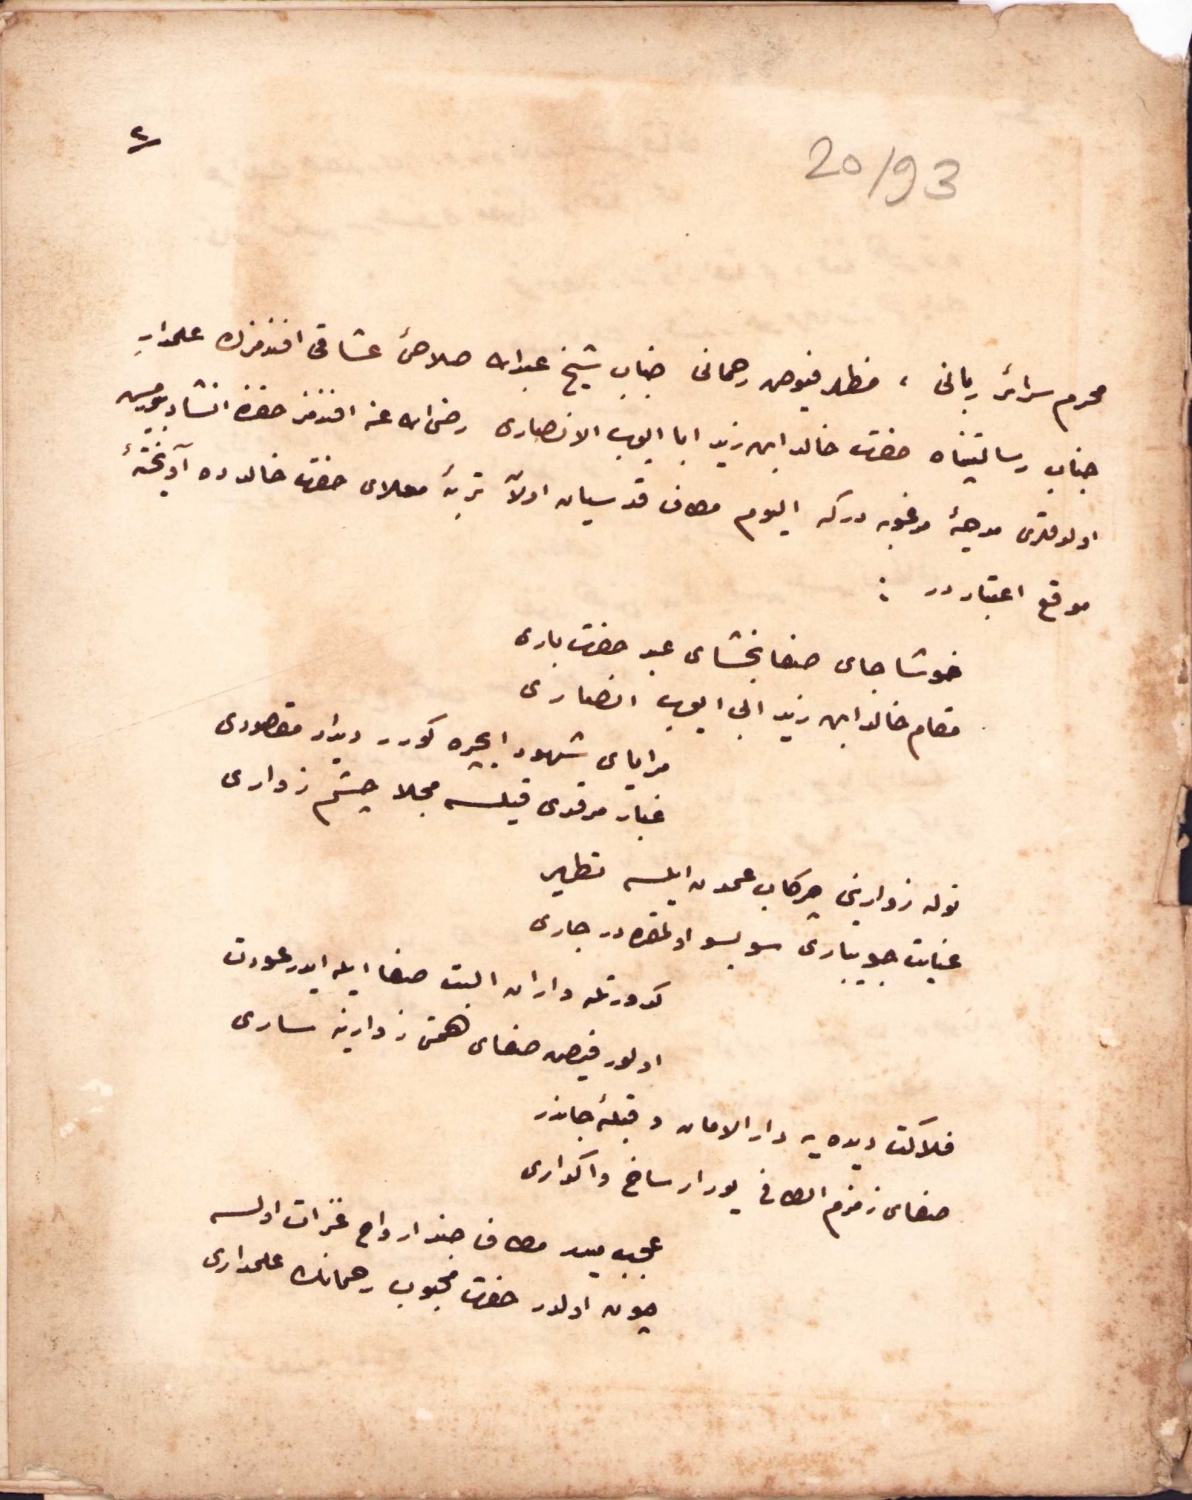 ٤
20/93
محرم سرائر ربانی ، مظهر فیوض رحمانی جناب شیخ عبدالله صلاحئ عشاقی افندمزك علمدارِ
جناب رسالتپناه حضرت خالد ابن زید ابا ایوب الانصاری رضی الله عنه افندمز حضرته انشاد
اولدقلری مدحیۀ مرغوبه درکه الیوم مطاف قدسیان اولان تربۀ معلای حضرت خالدده آویختۀ
موقع اعتبار در :
خوشا جای صفابخشای عبد حضرت باری
مقام خالد ابن زید ابی ایوب انصاری
مرایای شهود ایچره کورر دیدار مقصودی
غبار مرقدی قیلسه مجلا چشم زواری
نوله زوارینی چرکاب غمدن ایلسه تطهیر
عنایت جویباری سو بسو اولمقده در جاری
کدورتله واران البت صفا ایله ایدر عودت
اولور فیض صفای همتی زوارینه ساری
فلاکت دیده یه دار الامان و قبلۀ جاندر
صفای زمزم الطافی یودار ساخ واکواری
عجب میدر مطاف جند ارواح غزات اولسه
چون اولدر حضرت محبوب رحمانك علمداری